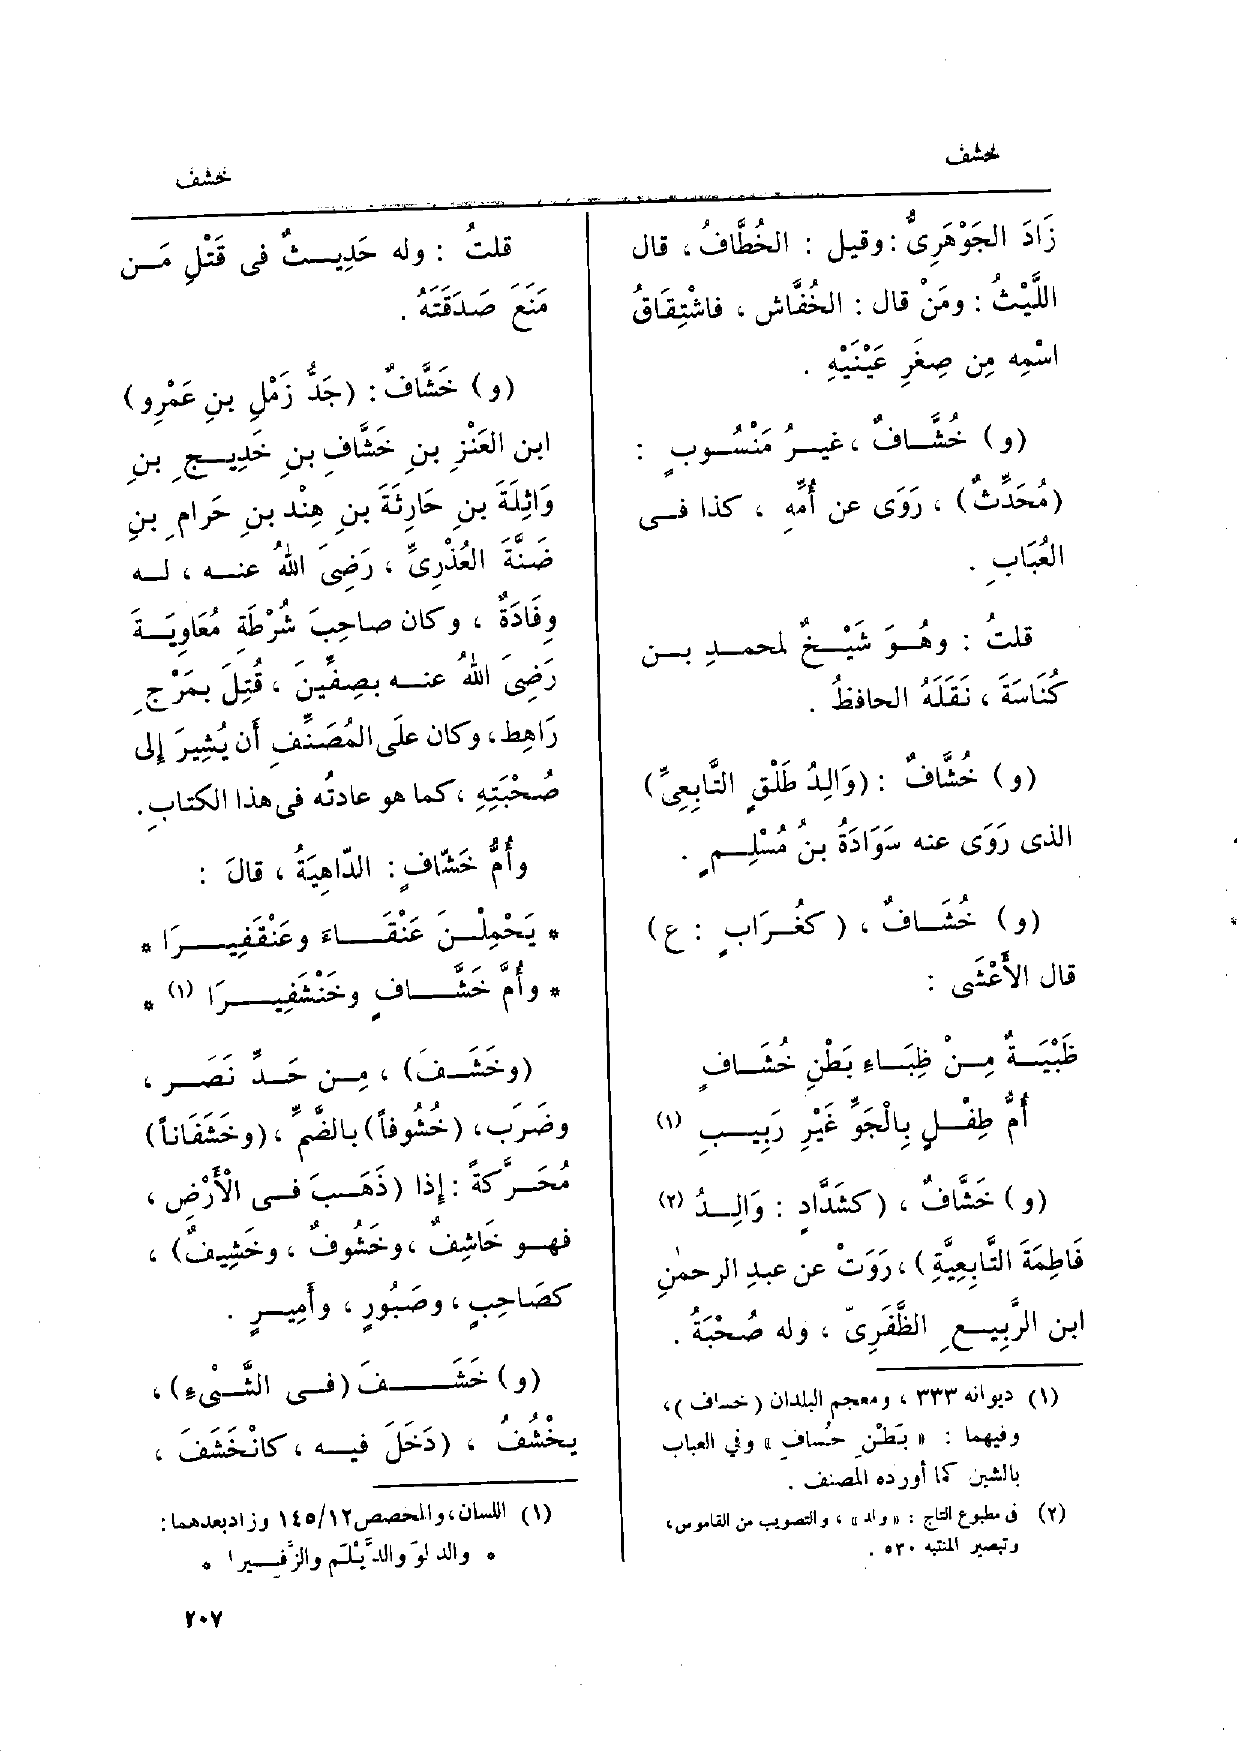 خشف
خشف
زَادَ الجَوْهَرِىُّ : وقيل : الخُطَّافُ ، قال
اللَّيْثُ : ومَنْ قال : الخُفَّاش ، فاشْتِقَاقُ
اسْمِه مِن صِغَرِ عَيْنَيْهِ .
(و) خُشَّافٌ ، غيرُ مَنْسُوبٍ :
(مُحَدِّثٌ) ، رَوَى عن أُمِّه ، كذا فى
العُبَابِ .
قلتُ : وهُوَ شَيْخٌ لمحمدِ بن
كُنَاسَةَ ، نَقَلَهُ الحافظُ .
(و) خُشَّافٌ : (وَالِدُ طَلْقٍ التَّابِعِىِّ)
الذى رَوَى عنه سَوَادَةُ بنُ مُسْلِمٍ .
(و) خُشَافٌ ، ( كغُرَابٍ : ع )
قال الأَعْشَى :
ظَبْيَةٌ مِنْ ظِبَاءِ بَطْنِ خُشَافٍ
أُمُّ طِفْلٍ بِالْجَوِّ غَيْرِ رَبِيبِ (١)
(و) خَشَّافٌ ، (كشَدَّادٍ : وَالِدُ (٢)
فَاطِمَةَ التَّابِعِيَّةِ ) ، رَوَتْ عن عبدِ الرحمٰنِ
ابن الرَّبِيعِ الظَّفَرِىّ ، وله صُحْبَةُ .
(١) ديوانه ٣٣٣ ، ومعجم البلدان ( خساف ) ،
وفيهما : « بَطْنِ خُسافِ » وفي العباب
بالشين كما أورده المصنف .
(٢) فى مطبوع التاج : « والد » ، والتصويب من القاموس ،
وتبصير المنتبه ٥٣٠ .
قلتُ : وله حَدِيثٌ فى قَتْلِ مَن
مَنَعَ صَدَقَتَهُ .
(و) خَشَّافٌ : (جَدُّ زَمْلِ بنِ عَمْرِو)
ابن العَنْزِ بنِ خَشَّافِ بنِ خَدِيجِ بنِ
وَائِلَةَ بنِ حَارِثَةَ بنِ هِنْد بنِ حَرام بنِ
ضَنَّةَ العُذْرِىِّ ، رَضِىَ اللهُ عنه ، له
وِفَادَةٌ ، وكان صاحِبَ شُرْطَةِ مُعَاوِيَةَ
رَضِىَ اللهُ عنه بصِفِّينَ ، قُتِلَ بمَرْجِ
رَاهِط ، وكان علَى المُصَنِّفِ أَن يُشِيرَ إلى
صُحْبَتِهِ ، كما هو عادتُه فى هذا الكتابِ .
وأُمُّ خَشَّافٍ : الدَّاهِيَةُ ، قالَ :
* يَحْمِلْنَ عَنْقَاءَ وعَنْقَفِيرَا *
* وأُمَّ خَشَّافٍ وخَنْشَفِيرَا (١) *
(وخَشَفَ) ، مِن حَدِّ نَصَر ،
وضَرَب ، (خُشُوفاً) بالضَّمِّ ، (وخَشَفَاناً)
مُحَرَّكَةً : إذا (ذَهَبَ فى الأَرْضِ ،
فهو خَاشِفٌ ، وخَشُوفٌ ، وخَشِيفٌ) ،
كصَاحِبٍ ، وصَبُورٍ ، وأَمِيرٍ .
(و) خَشَفَ (فى الشَّىْءِ) ،
يخْشُفُ ، (دَخَلَ فيه ، كانْخَشَفَ ،
(١) اللسان ، والمخصص ١٢/ ١٤٥ وزاد بعدهما :
* والدلوَ والدَّيْلَم والزَّفيرا *
٢٠٧